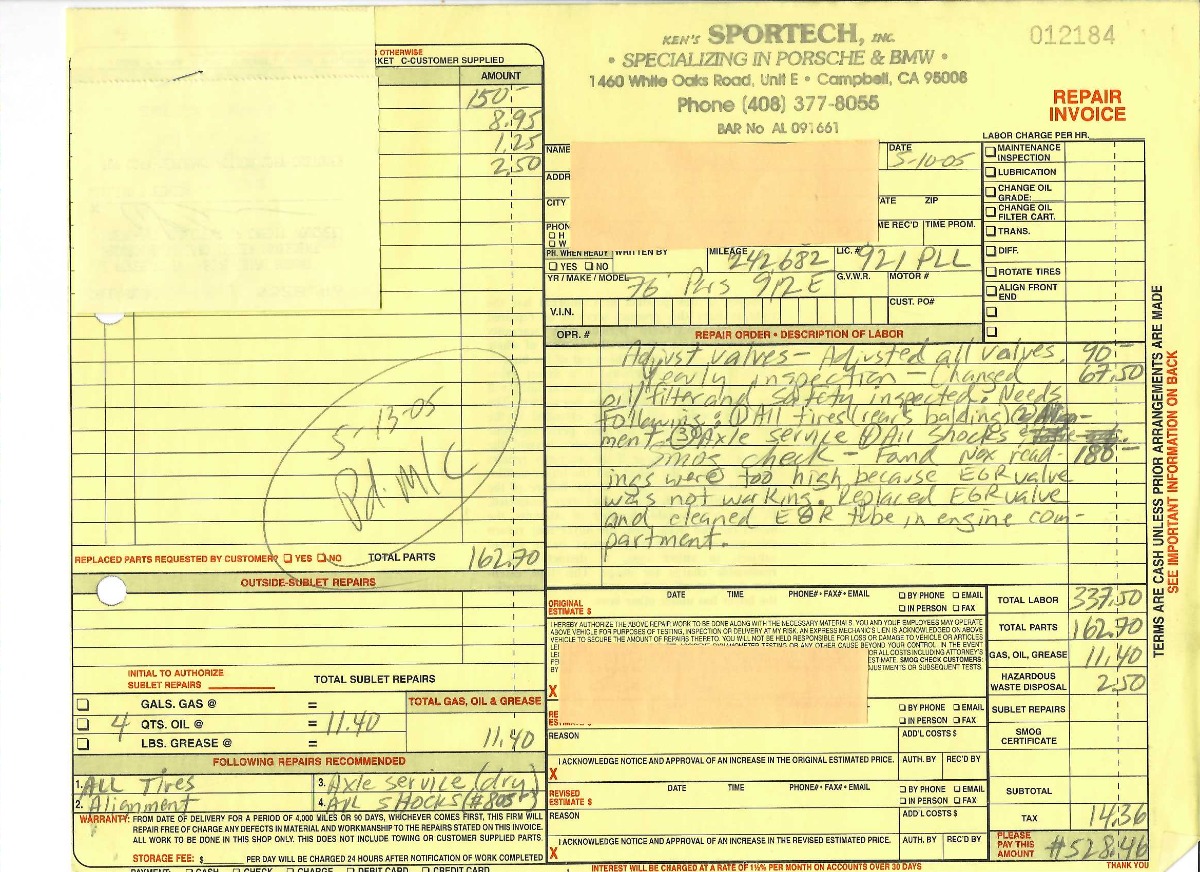 KEN'S SPORTECH, INC.
• SPECIALIZING IN PORSCHE & BMW •
1460 White Oaks Road, Unit E • Campbell, CA 95008
Phone (408) 377-8055
BAR No AL 091661
012184
REPAIR
INVOICE
OTHERWISE
C-CUSTOMER SUPPLIED
AMOUNT
150-
8.95
1.25
2.50
5-13-05
Pd. M/C
REPLACED PARTS REQUESTED BY CUSTOMER? YES NO TOTAL PARTS 162.70
OUTSIDE-SUBLET REPAIRS
INITIAL TO AUTHORIZE
SUBLET REPAIRS
TOTAL SUBLET REPAIRS
GALS. GAS @ = TOTAL GAS, OIL & GREASE
4 QTS. OIL @ = 11.40
LBS. GREASE @ = 11.40
FOLLOWING REPAIRS RECOMMENDED
1. ALL Tires 3. Axle service (dry)
2. Alignment 4. ALL SHOCKS
WARRANTY: FROM DATE OF DELIVERY FOR A PERIOD OF 4,000 MILES OR 90 DAYS, WHICHEVER COMES FIRST, THIS FIRM WILL
REPAIR FREE OF CHARGE ANY DEFECTS IN MATERIAL AND WORKMANSHIP TO THE REPAIRS STATED ON THIS INVOICE.
ALL WORK TO BE DONE IN THIS SHOP ONLY. THIS DOES NOT INCLUDE TOWING OR CUSTOMER SUPPLIED PARTS.
STORAGE FEE: $ PER DAY WILL BE CHARGED 24 HOURS AFTER NOTIFICATION OF WORK COMPLETED
NAME
DATE
5-10-05
ADDR
CITY
ZIP
PHON
H
W
TIME PROM.
PH. WHEN READY
YES NO
WRITTEN BY
MILEAGE 242682
LIC. # 921 PLL
YR / MAKE / MODEL 76 Pors 912E
G.V.W.R.
MOTOR #
V.I.N.
CUST. PO#
OPR. #
REPAIR ORDER • DESCRIPTION OF LABOR
Adjust valves - Adjusted all valves. 90-
Yearly inspection - Changed 67.50
oil/filter and safety inspected. Needs
following: ① All tires (rears balding) ②
ment ③ Axle service ④ All shocks
Smog check - Found Nox read- 180-
ings were too high because EGR valve
was not working. Replaced EGR valve
and cleaned EGR tube in engine com-
partment.
LABOR CHARGE PER HR.
MAINTENANCE
INSPECTION
LUBRICATION
CHANGE OIL
GRADE:
CHANGE OIL
FILTER CART.
TRANS.
DIFF.
ROTATE TIRES
ALIGN FRONT
END
ORIGINAL
ESTIMATE $
DATE TIME PHONE# • FAX# • EMAIL
BY PHONE EMAIL
IN PERSON FAX
I HEREBY AUTHORIZE THE ABOVE REPAIR WORK TO BE DONE ALONG WITH THE NECESSARY MATERIALS. YOU AND YOUR EMPLOYEES MAY OPERATE
ABOVE VEHICLE FOR PURPOSES OF TESTING, INSPECTION OR DELIVERY AT MY RISK. AN EXPRESS MECHANIC'S LIEN IS ACKNOWLEDGED ON ABOVE
VEHICLE TO SECURE THE AMOUNT OF REPAIRS THERETO. YOU WILL NOT BE HELD RESPONSIBLE FOR LOSS OR DAMAGE TO VEHICLE OR ARTICLES
X
BY PHONE EMAIL
IN PERSON FAX
REASON
ADD'L COSTS $
X
I ACKNOWLEDGE NOTICE AND APPROVAL OF AN INCREASE IN THE ORIGINAL ESTIMATED PRICE.
AUTH. BY REC'D BY
REVISED
ESTIMATE $
DATE TIME PHONE# • FAX# • EMAIL
BY PHONE EMAIL
IN PERSON FAX
REASON
ADD'L COSTS $
X
I ACKNOWLEDGE NOTICE AND APPROVAL OF AN INCREASE IN THE REVISED ESTIMATED PRICE.
AUTH. BY REC'D BY
TOTAL LABOR 337.50
TOTAL PARTS 162.70
GAS, OIL, GREASE 11.40
HAZARDOUS
WASTE DISPOSAL 2.50
SUBLET REPAIRS
SMOG
CERTIFICATE
SUBTOTAL
TAX 14.36
PLEASE
PAY THIS
AMOUNT $528.46
THANK YOU
INTEREST WILL BE CHARGED AT A RATE OF 1½% PER MONTH ON ACCOUNTS OVER 30 DAYS
TERMS ARE CASH UNLESS PRIOR ARRANGEMENTS ARE MADE
SEE IMPORTANT INFORMATION ON BACK